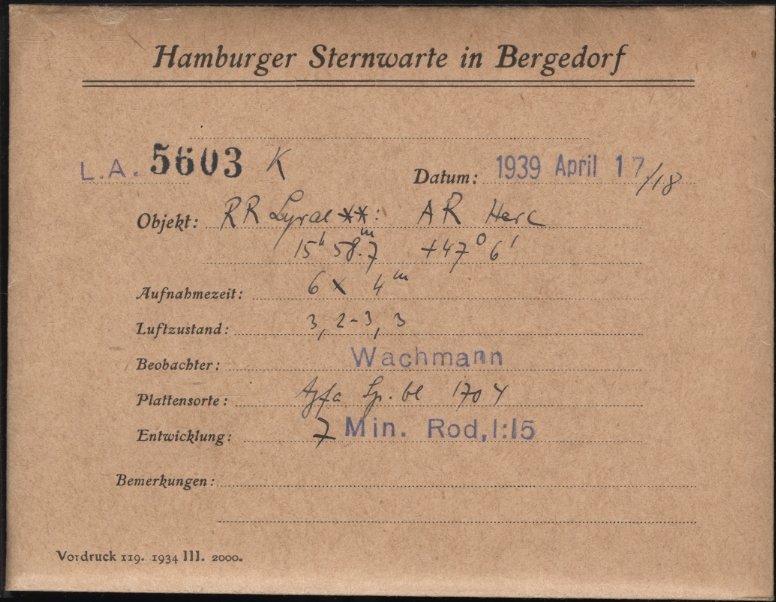 Hamburger Sternwarte in Bergedorf
L.A. 5603 K Datum: 1939 April 17/18
Objekt: RR Lyrae **: AR Herc
15h 58.m7 +47° 6'
Aufnahmezeit: 6 x 4m
Luftzustand: 3, 2-3, 3
Beobachter: Wachmann
Plattensorte: Agfa Sp. bl 1704
Entwicklung: 7 Min. Rod, 1:15
Bemerkungen:
Vordruck 119. 1934 III. 2000.